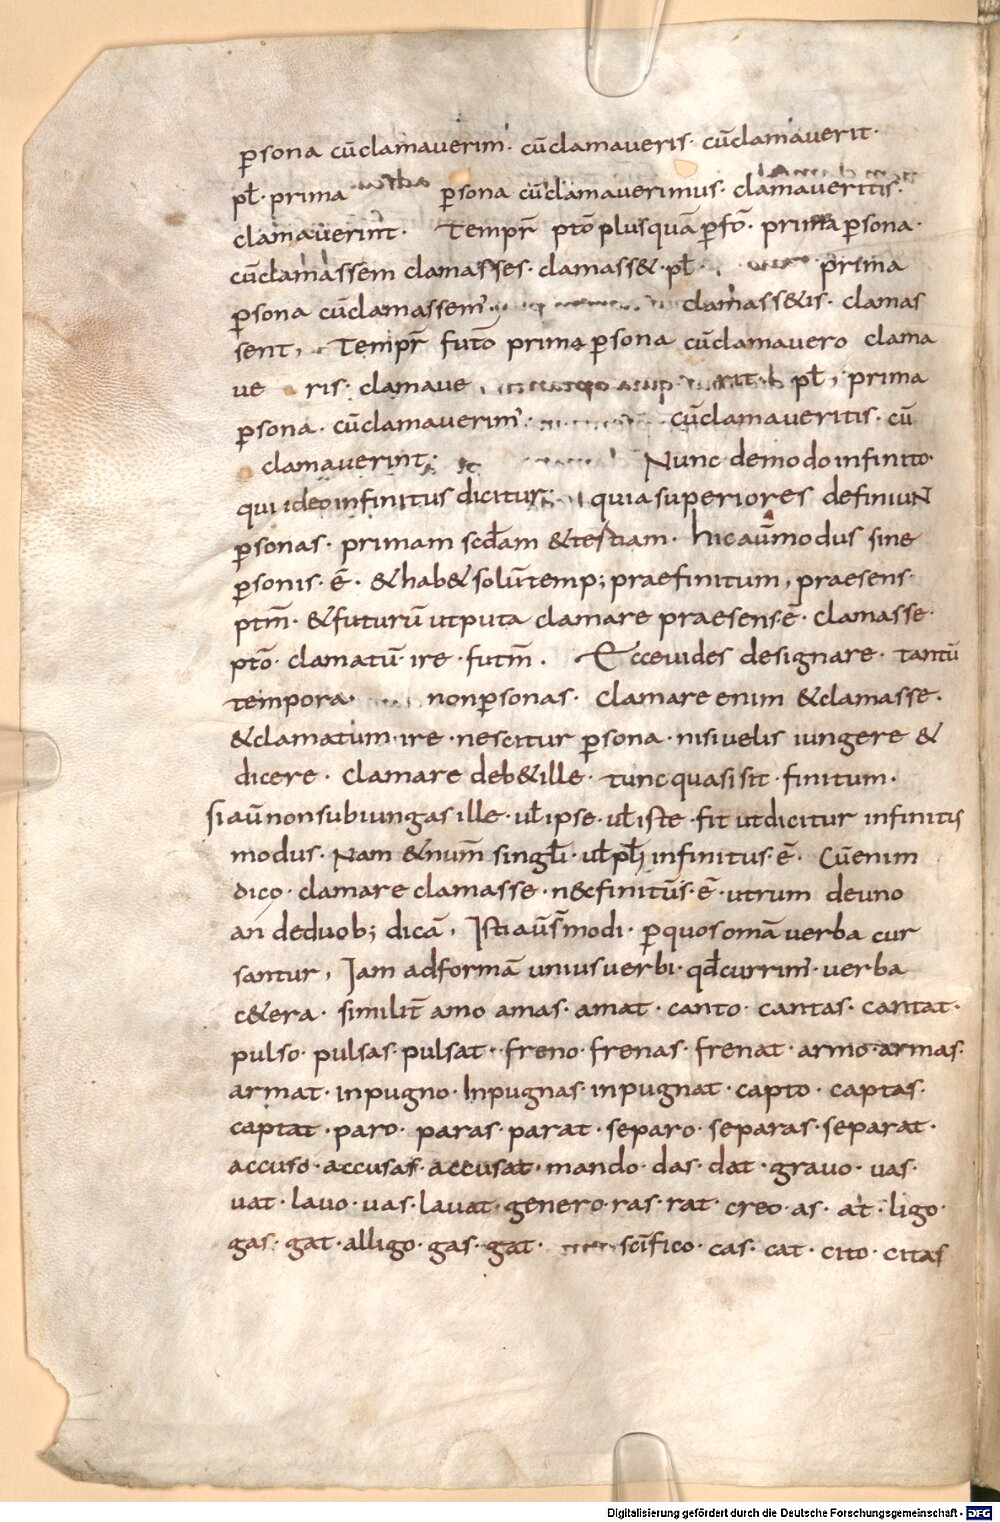 p̄sona cūclamauerim̄· cūclamaueris· cūclamauerit·
pƚ· prima p̄sona cūclamauerimus· clamaueritis·
clamauerint· Tempr̄ pto plusquā p̄fto· prima p̄sona·
cūclamassem clamasses· clamass&· pƚ· prima
p̄sona cūclamassem̄· clamass&is· clamas
sent, Tempr̄ futo prima p̄sona cūclamauero clama
ue ris· clamaue rit· pƚ, prima
p̄sona· cūclamauerim̄· cūclamaueritis· cū
clamauerint; Nunc demodoinfinito·
qui ideoinfinitus dicitur; quiasuperiores definiuN
p̄sonas· primam scd̄am &tertiam· hicaūmodus sine
p̄sonis· ē· &hab&solūtemp; praefinitum, praesens·
ptm̄· &futurū utputa clamare praesens·ē· clamasse·
pto· clamatū·ire·futm̄· Ecceuides designare· tantū
tempora· nonp̄sonas· clamare enim &clamasse·
&clamatum·ire·nescitur p̄sona·nisiuelis iungere &
dicere· clamare deb&ille· tuncquasisit·finitum·
siaūnonsubiungas ille·uƚipse·uƚiste·fit utdicitur infinitis
modus· Nam &num̄ singƚi·uƚpƚi infinitus·ē· Cūenim
dico· clamare clamasse·necfinitūs·ē·utrum deuno
an deduob; dicā, Istiaūs̄modi· p̄quosomā uerba cur
santur, Iam adformā uniusuerbi·qd̄currim̄·uerba
c&era· similit̄ amo amas·amat·canto·cantas·cantat·
pulso·pulsas·pulsat·freno·frenas·frenat·armo·armas·
armat·inpugno·Inpugnas·inpugnat·capto·captas·
captat·paro·paras·parat·separo·separas·separat·
accuso·accusas·accusat·mando·das·dat·grauo·uas·
uat·lauo·uas·lauat·genero·ras·rat·creo·as·at·ligo·
gas·gat·alligo·gas·gat· scīfico·cas·cat·cito·citas
Digitalisierung gefördert durch die Deutsche Forschungsgemeinschaft - DFG